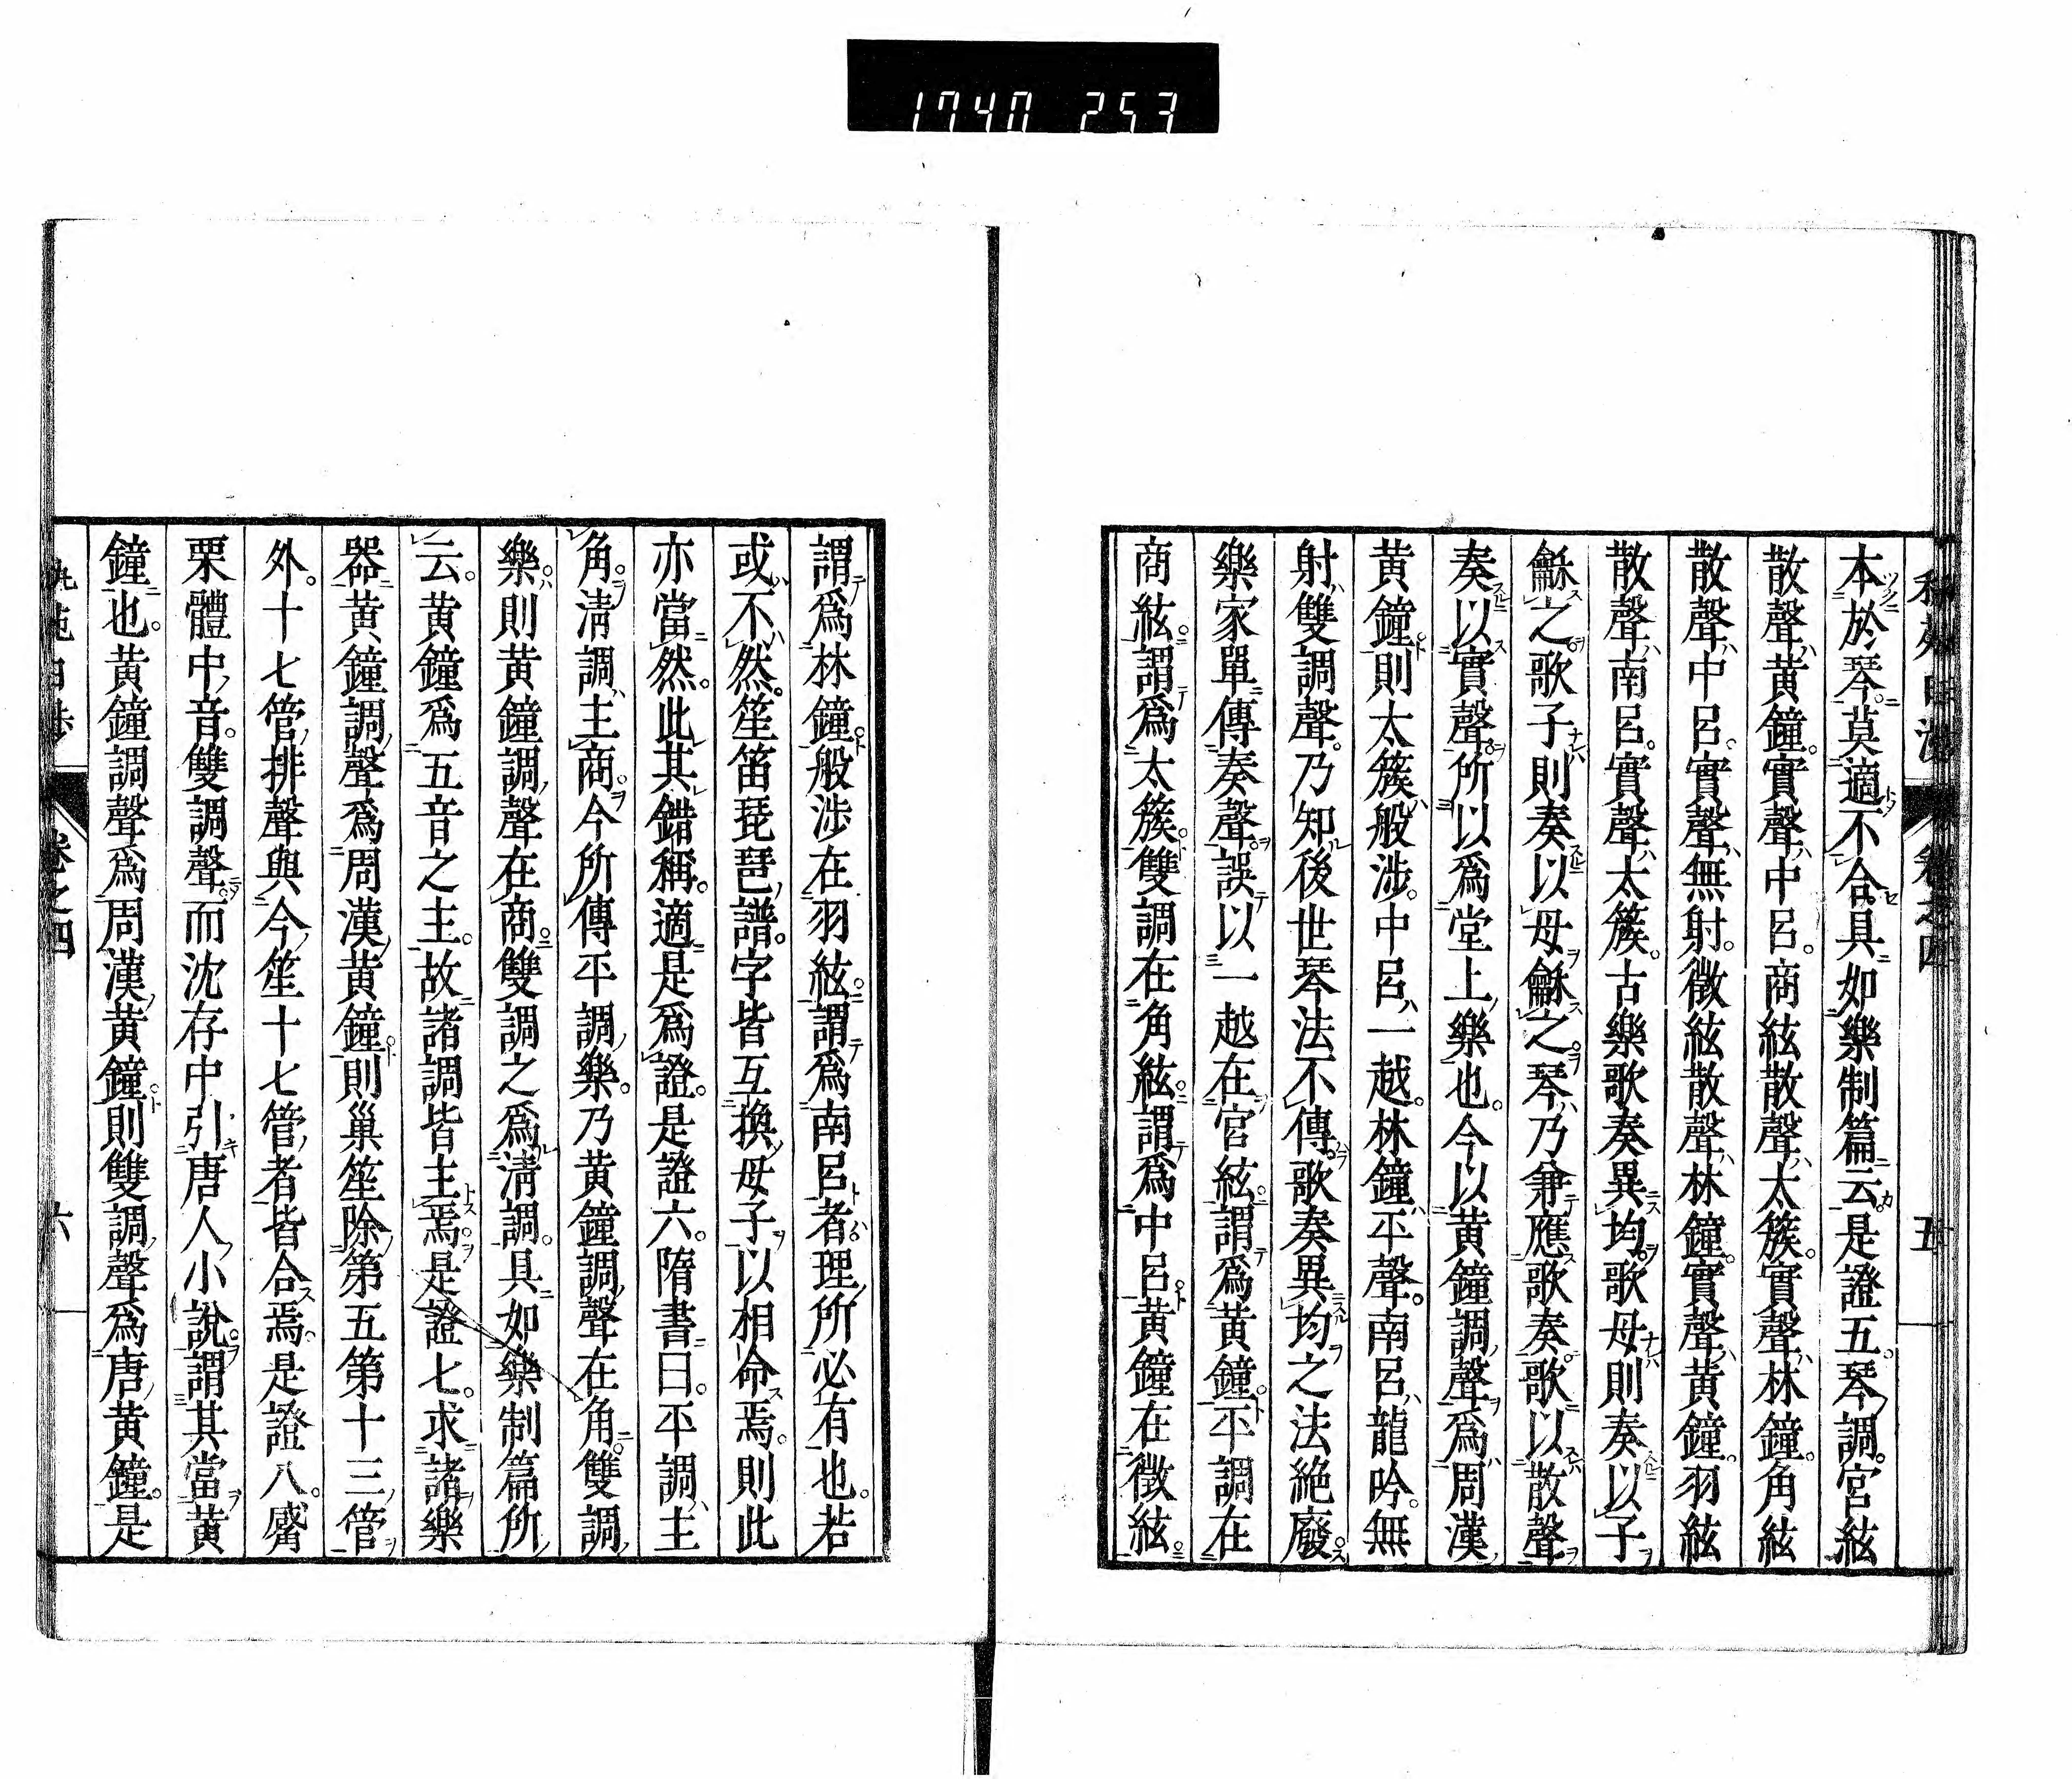 1740 253
本於琴。莫適不合。具如樂制篇云。是證五。琴調。宮絃
散聲黃鐘。實聲中呂。商絃散聲太簇。實聲林鐘。角絃
散聲中呂。實聲無射。徵絃散聲林鐘。實聲黃鐘。羽絃
散聲南呂。實聲太簇。古樂歌奏異均。歌母則奏以子
龢之。歌子則奏以母龢之。琴乃兼應歌奏。歌以散聲
奏以實聲。所以爲堂上樂也。今以黃鐘調聲爲周漢
黃鐘。則太簇般涉。中呂一越。林鐘平聲。南呂龍吟。無
射雙調聲。乃知後世琴法不傳。歌奏異均之法絕廢。
樂家單傳奏聲。誤以一越在宮絃。謂爲黃鐘。平調在
商絃。謂爲太簇。雙調在角絃。謂爲中呂。黃鐘在徵絃。
謂爲林鐘。般涉在羽絃。謂爲南呂者。理所必有也。若
或不然。笙笛琵琶譜。字皆互換母子以相命焉。則此
亦當然。此其錯稱。適是爲證。是證六。隋書曰。平調主
角。清調主商。今所傳平調樂。乃黃鐘調聲在角。雙調
樂。則黃鐘調聲在商。雙調之爲淸調。具如樂制篇所
云。黃鐘爲五音之主。故諸調皆主焉。是證七。求諸樂
器。黃鐘調聲爲周漢黃鐘。則巢笙除第五第十三管
外。十七管排聲與今笙十七管者皆合焉。是證八。觱
栗體中音。雙調聲。而沈存中引唐人小說。謂其當黃
鐘也。黃鐘調聲爲周漢黃鐘。則雙調聲爲唐黃鐘。是
卷之四
六